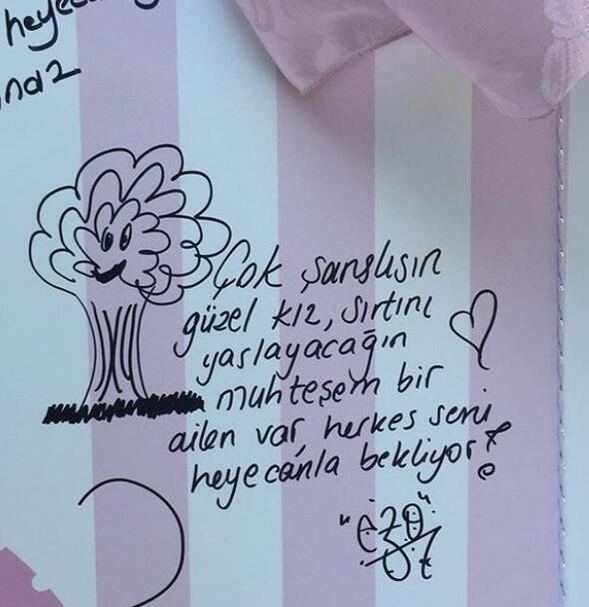 Çok şanslısın
güzel kız, sırtını
yaslayacağın
muhteşem bir
ailen var, herkes seni
heyecanla bekliyor
"ezo"